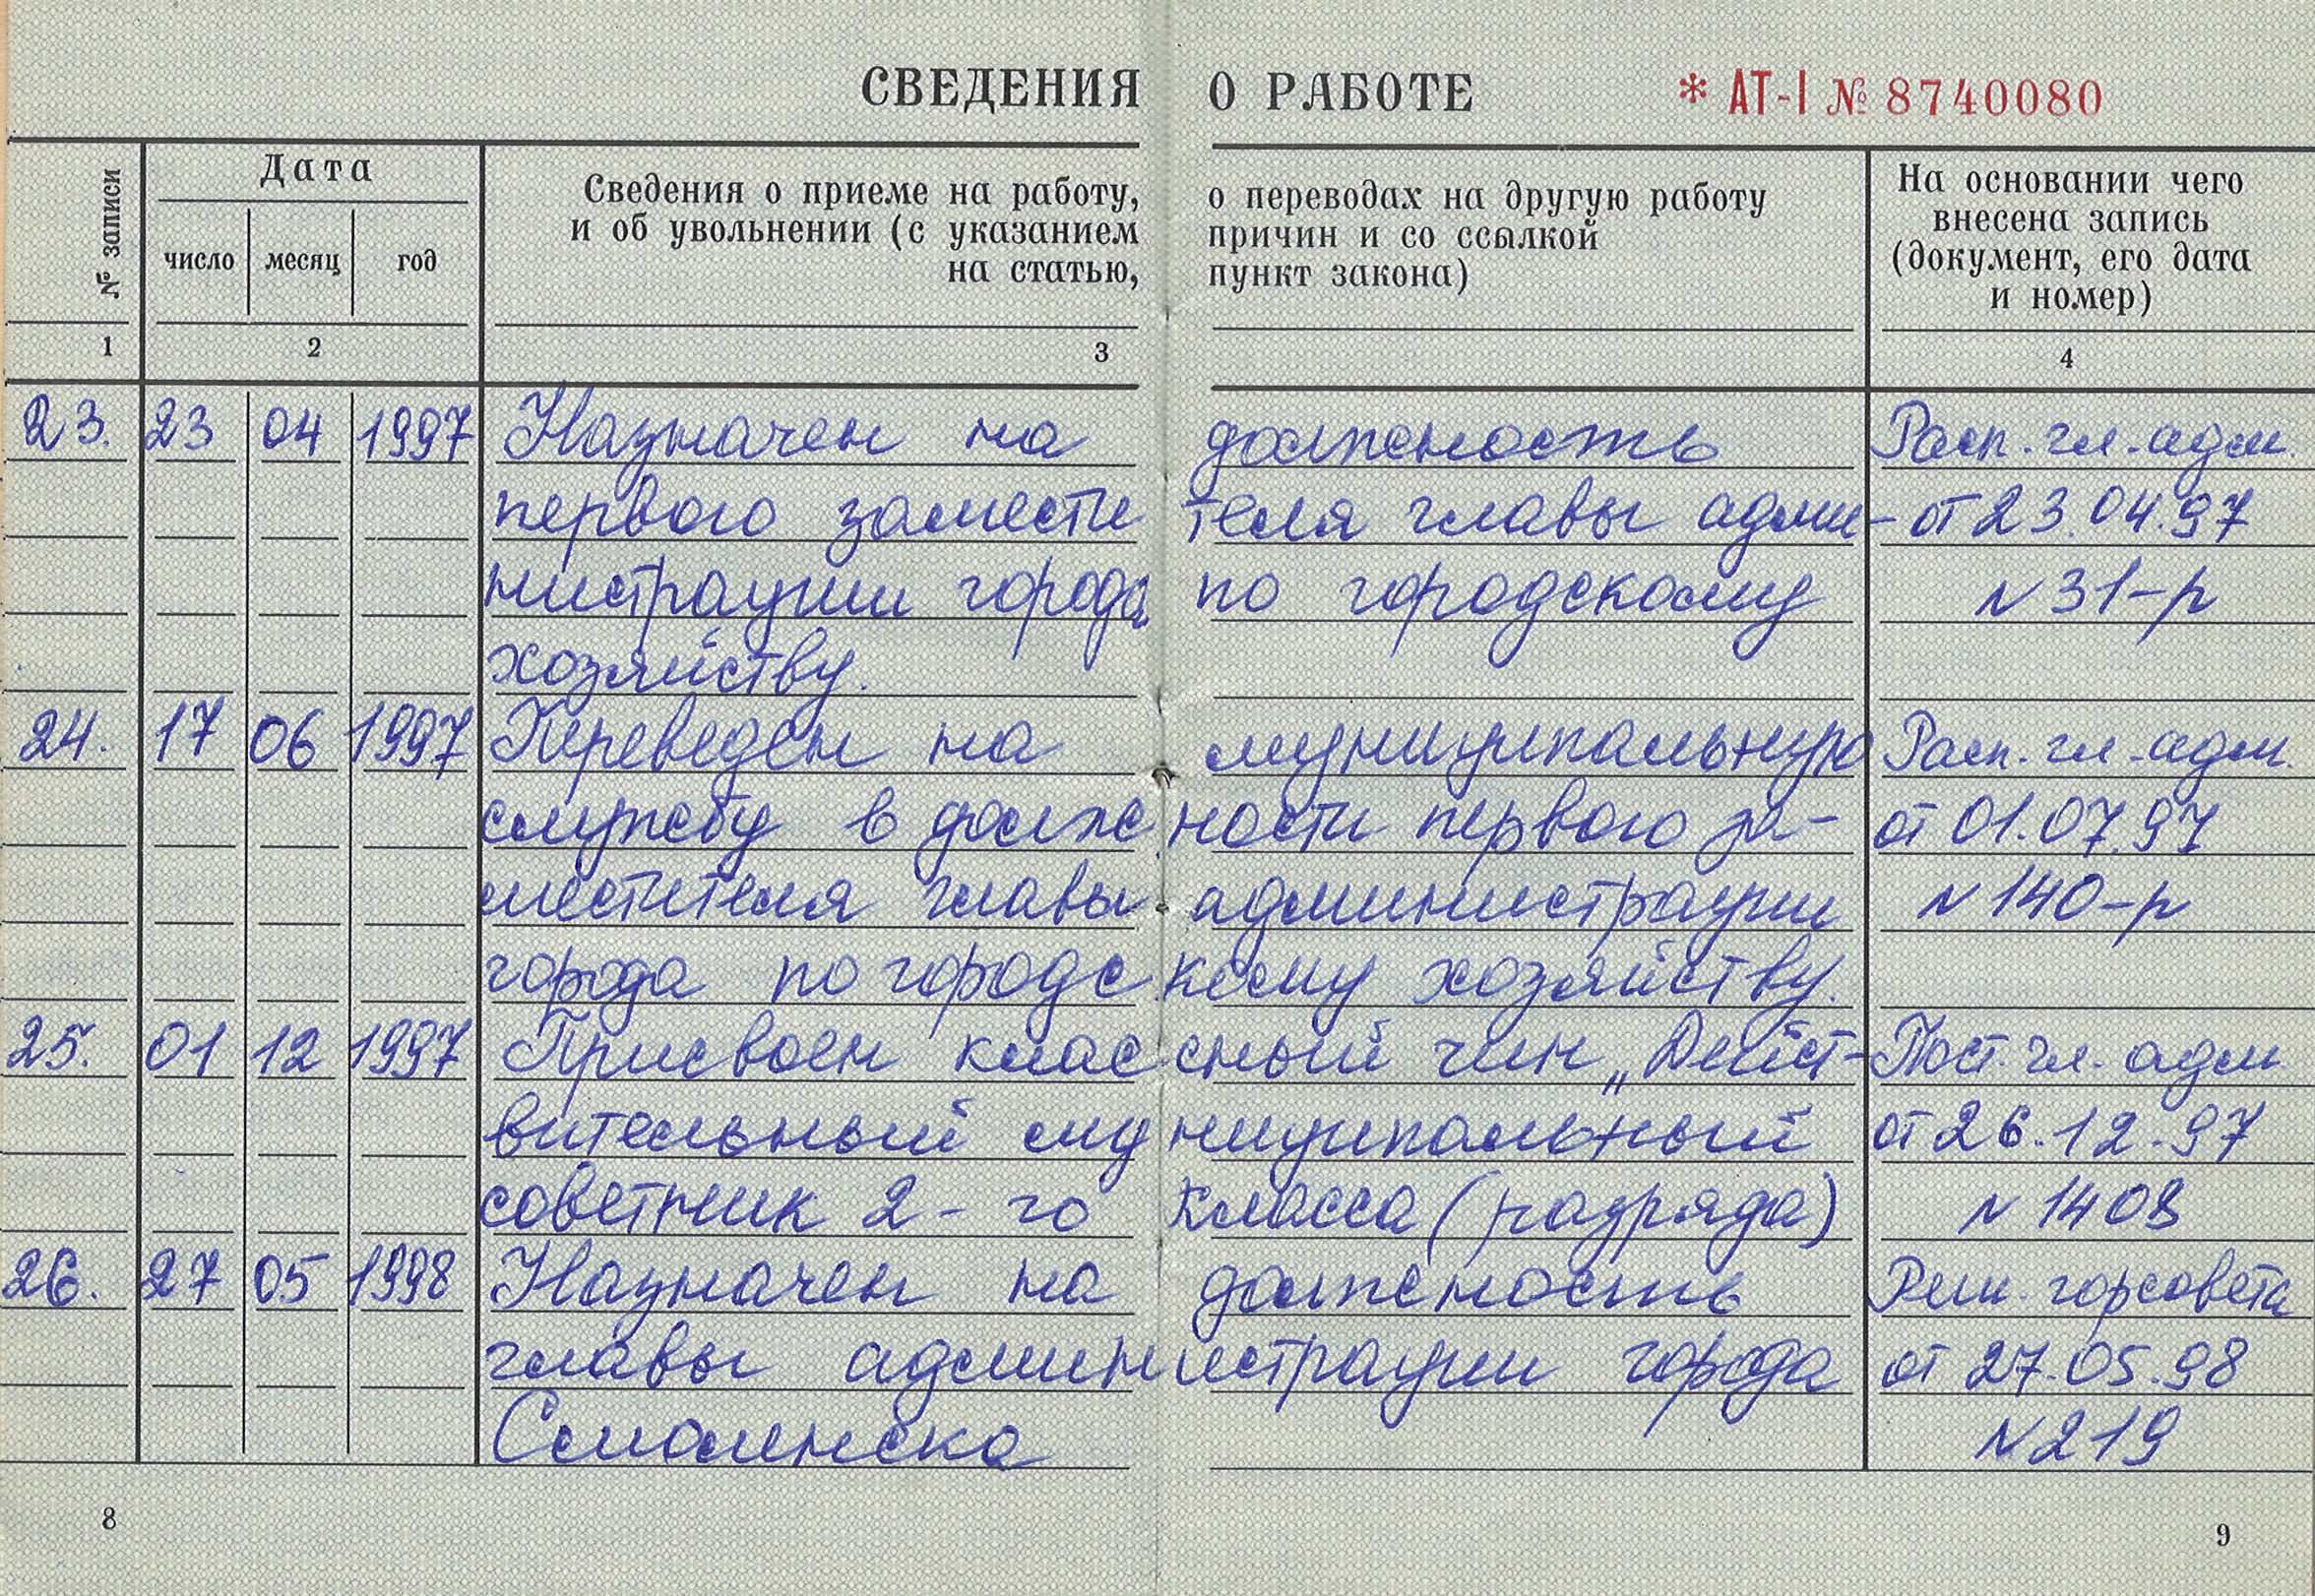 СВЕДЕНИЯ О РАБОТЕ * АТ-I № 8740080
№ записи
Дата
число месяц год
Сведения о приеме на работу, о переводах на другую работу
и об увольнении (с указанием причин и со ссылкой
на статью, пункт закона)
На основании чего
внесена запись
(документ, его дата
и номер)
1 2 3 4
23. 23 04 1997 Назначен на должность Расп. гл. адм.
первого замести теля главы адми- от 23.04.97
нистрации города по городскому N 31-р
хозяйству.
24. 17 06 1997 Переведен на муниципальную Расп. гл. адм.
службу в долж ности первого за- от 01.07.97
местителя главы администрации N 140-р
города по городс кому хозяйству.
25. 01 12 1997 Присвоен клас сный чин „Дейст- Пост. гл. адм
вительный му ниципальный от 26.12.97
советник 2-го класса (разряда) N 1408
26. 27 05 1998 Назначен на должность Реш. горсовета
главы админ истрации города от 27.05.98
Смоленска N 219
8 9